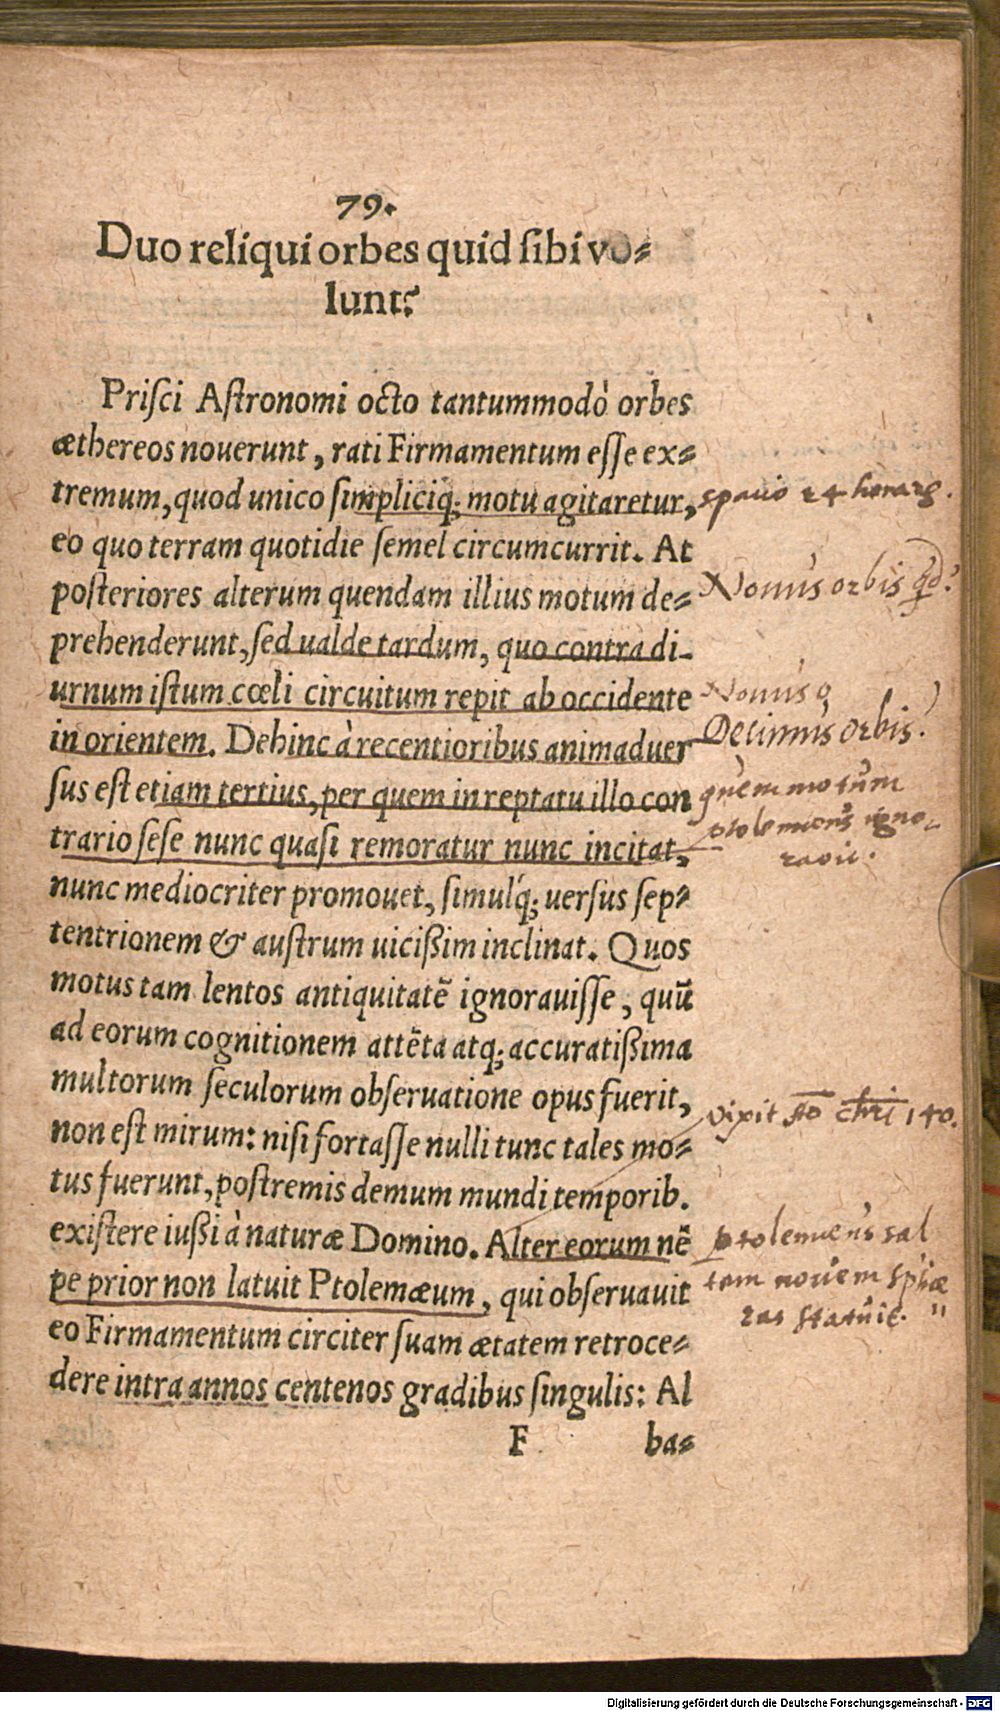 79.
Duo reliqui orbes quid ſibi vo⸗
lunt?
Priſci Aſtronomi octo tantummodò orbes
æthereos nouerunt, rati Firmamentum eſſe ex⸗
tremum, quod unico ſimpliciq; motu agitaretur,
spacio 24 horarꝫ.
eo quo terram quotidie ſemel circumcurrit. At
poſteriores alterum quendam illius motum de⸗
Nonus orbis qd?
prehenderunt, ſed ualde tardum, quo contra di⸗
urnum iſtum cœli circuitum repit ab occidente
Nonus
in orientem. Dehinc à recentioribus animaduer
Decimus orbis?
ſus eſt etiam tertius, per quem in reptatu illo con
quem motum
trario ſeſe nunc quaſi remoratur nunc incitat,
ptolemæus igno-
rauit.
nunc mediocriter promouet, ſimulq́; uerſus ſep⸗
tentrionem & auſtrum uicißim inclinat. Quos
motus tam lentos antiquitatẽ ignorauiſſe, quũ
ad eorum cognitionem attẽta atq; accuratißima
multorum ſeculorum obſeruatione opus fuerit,
vixit Ao chri 140.
non eſt mirum: niſi fortaſſe nulli tunc tales mo⸗
tus fuerunt, poſtremis demum mundi temporib.
exiſtere iußi à naturæ Domino. Alter eorum nẽ
ptolemæus sal
pe prior non latuit Ptolemæum, qui obſeruauit
tem nouem sphæ
ras statuit.
eo Firmamentum circiter ſuam ætatem retroce⸗
dere intra annos centenos gradibus ſingulis: Al
F
ba⸗
Digitalisierung gefördert durch die Deutsche Forschungsgemeinschaft - DFG